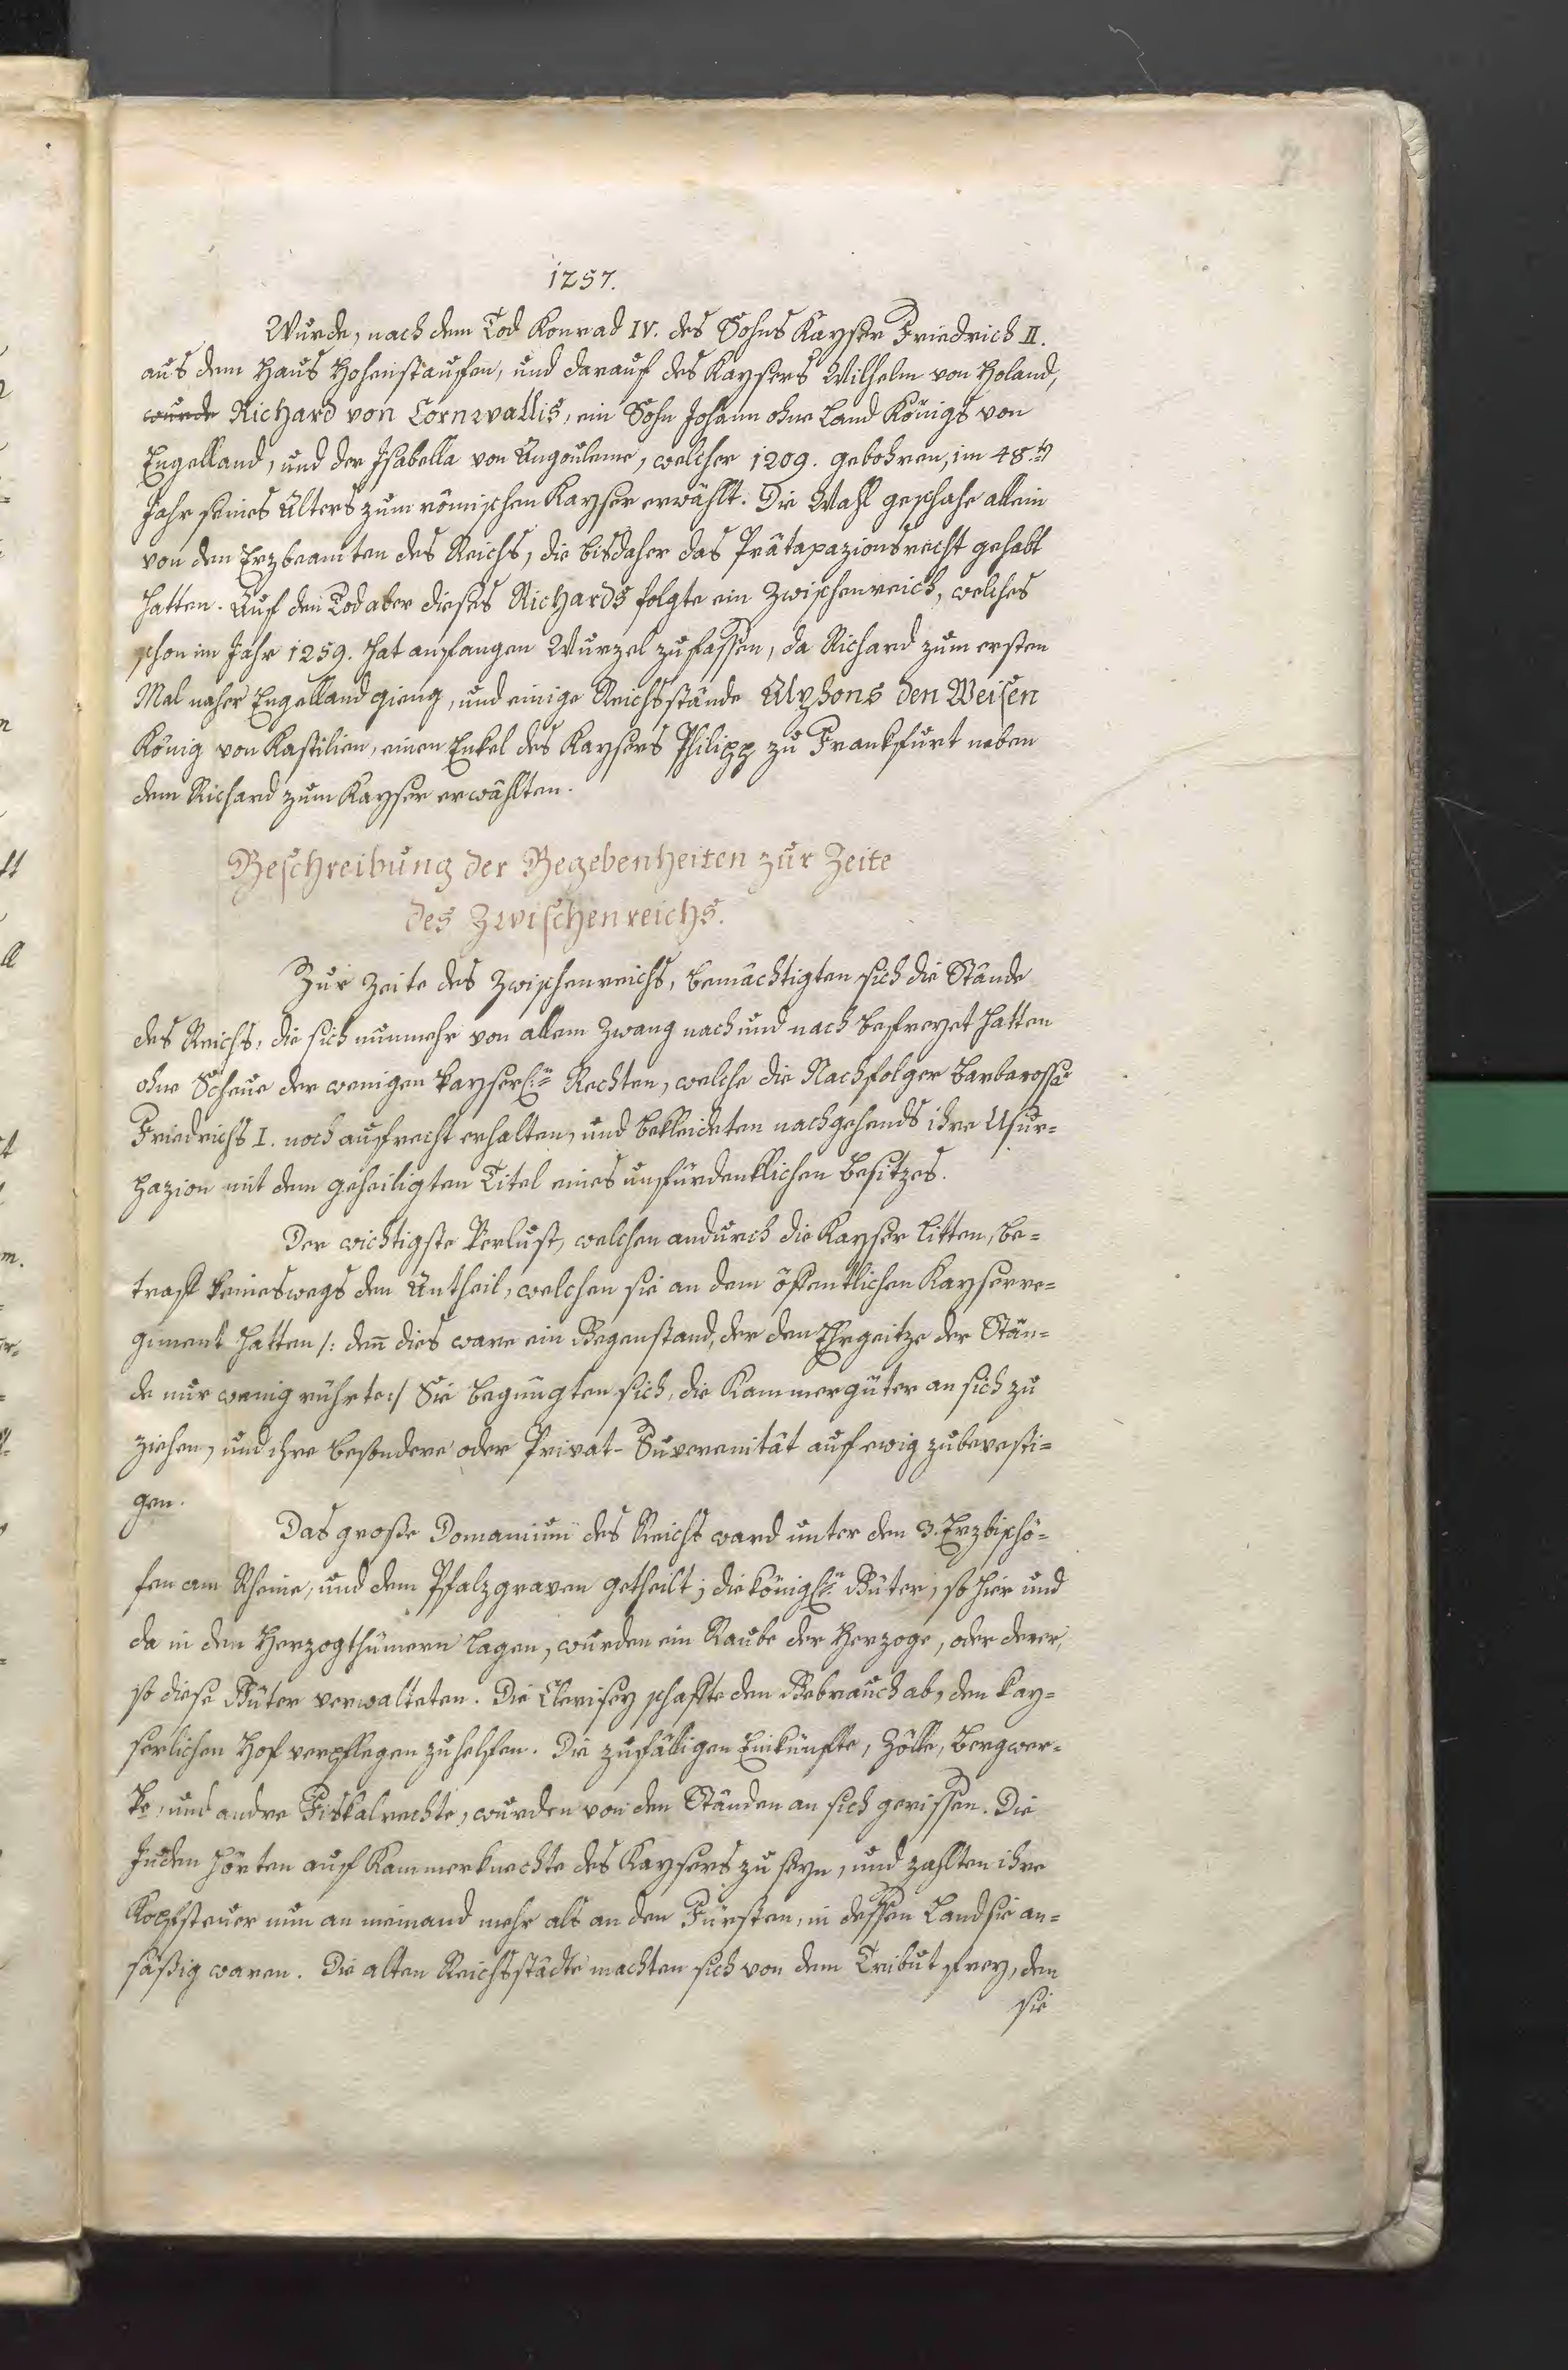 7
1257.
Wurde, nach dem Tod Konrad IV. des Sohns Kayser Friedrich II.
aus dem Haus Hohenstauffen, und darauf des Kaysers Wilhelm von Holand,
wurde Richard von Cornwallis, ein Sohn Johann ohne Land Königs von
Engelland, und der Isabella von Angouleme, welcher 1209. gebohren, im 48.ten
Jahr seines Alters zum römischen Kayser erwählt. Die Wahl geschahe allein
von den Erzbeamten des Reichs, die bisdaher das Prätaxazionsrecht gehabt
hatten. Auf den Tod aber dieses Richards folgte ein Zwischenreich, welches
schon im Jahr 1259. hat anfangen Wurzel zu fassen, da Richard zum ersten
Mal naher Engelland gieng, und einige Reichsstände Alphons den Weisen
König von Kastilien, einen Enkel des Kaysers Philipp zu Frankfurt neben
dem Richard zum Kayser erwählten.
Beschreibung der Begebenheiten zur Zeite
des Zwischenreichs.
Zur Zeite des Zwischenreichs, bemächtigten sich die Stände
des Reichs, die sich nunmehr von allem Zwang nach und nach befreyet hatten
ohne Scheue der wenigen kayserl:n Rechten, welche die Nachfolger Barbarossä
Friedrichs I. noch aufrecht erhalten, und bekleideten nachgehends ihre Usur-
pazion mit dem geheiligten Titel eines unfürdenklichen Besitzes.
Der wichtigste Verlust, welchen andurch die Kayser litten, be-
traff keineswegs den Antheil, welchen sie an dem öffentlichen Kayserre-
giment hatten /: denn dies ware ein Gegenstand, der den Ehrgeitze der Stän-
de nur wenig rührte :/ Sie begnügten sich, die Kammergüter an sich zu
ziehen, und ihre besondere oder Privat-Suverenität auf ewig zu bevesti-
gen.
Das große Domanium des Reichs ward unter den 3. Erzbischö-
fen am Rheine, und dem Pfalzgraven getheilt; die königl:n Güter, so hier und
da in den Herzogthümern lagen, wurden ein Raube der Herzoge, oder derer,
so diese Güter verwalteten. Die Clerisey schafte den Gebrauch ab, den kay-
serlichen Hof verpflegen zu helfen. Die zufälligen Einkünfte, Zölle, Bergwer-
ke, und andre Fiskalrechte, wurden von den Ständen an sich gerissen. Die
Juden hörten auf Kammerknechte des Kaysers zu seyn, und zahlten ihre
Kopfsteuer nun an niemand mehr als an den Fürsten, in dessen Land sie an-
säßig waren. Die alten Reichsstädte machten sich von dem Tribut frey, den
sie